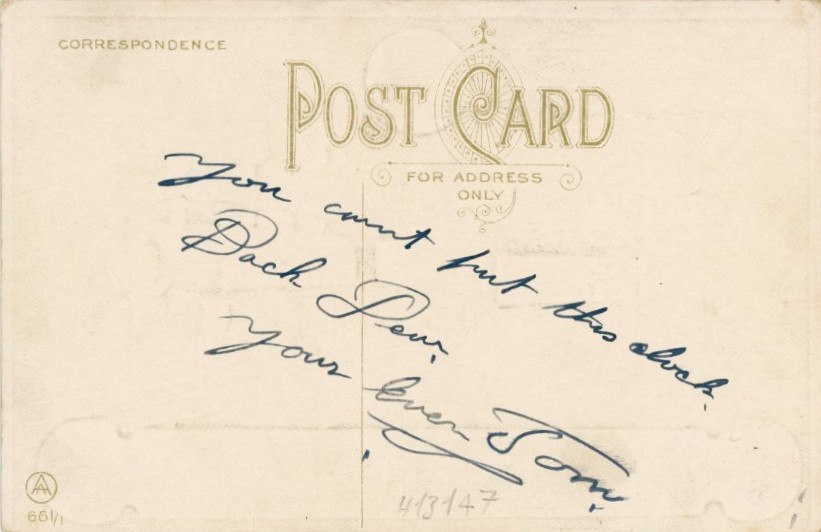 CORRESPONDENCE
POST CARD
FOR ADDRESS
ONLY
You cannt put this clock.
Back Dear.
Your Ever Tom.
AA
661/1
413147